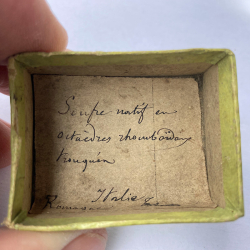 Soufre natif en
octaèdres rhomboïdaux
tronqués
Italie